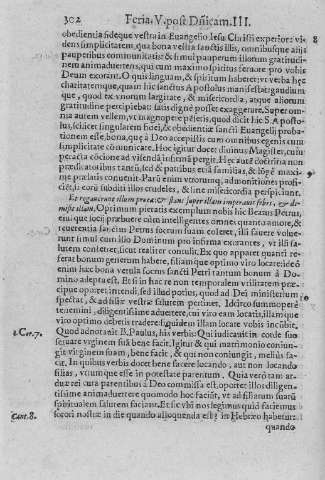 302 Feria. V. post Dñicam. III.
obedientia fideque vestra in Euangelio Iesu Christi experitur: vi-
dens simplicitatem, qua bona vestra sanctis illis, omnibusque alijs
pauperibus communicatis: & simul pauperum illorum gratitudi-
nem animaduertens, qui cum maximo spiritus feruore pro vobis
Deum exorant. O quis linguam, & spiritum haberet: vt verba hęc
charitatemque, quam hic sanctus Apostolus manifestat gaudium
que, quod ex vnorum largitate, & misericordia, atque aliorum
gratitudine percipiebat: satis digne posset exaggerare. Super om-
nia autem vellem, vt magnopere
lus, scilicet singularem fidei, & obedientię sancti Euangelij proba-
tionem esse, bona, quę à Deo accepistis cum omnibus egenis cum
simplicitate communicare. Hoc igitur docet diuinus Magister, cum
peracta cocione ad visendā infirmā pergit. Hęc autē doctrina non
prædicatoribus tantū, sed & patribus etiā familias, & lōgè maxi-
me prælatis conuenit. Parū enim vtrorumq; admonitiones profi-
ciēt, si eorū subditi illos crudeles, & sine misericordia perspiciunt.
Et rogauerunt illum pro ea: & stans super illam imperauit febri, & di-
misit illam. Optimum pietatis exemplum nobis hic Beatus Petrus,
eni que socij præbuere: vt enim intelligamus omnes quanto amore, &
reuerentia sanctus Petrus socrum suam coleret, illi sauere volue-
runt simul cum illo Dominum pro infirma exorantes, vt illi salu-
tem conferret, sicut realiter contulit. Ex quo apparet quanti re-
ferat bonum generum habere, filiamque optimo viro locare: ideò
enim hæc bona vetula socrus sancti Petri tantum bonum à Do-
mino adepta est. Et si in hac re non temporalem vtilitatem præ-
cipuè oportet intendi, sed illud potius, quod ad Dei ministerium
spectat, & ad filiæ vestræ salutem pertinet, Idcirco summopere
tenemini, diligentissimè aduertere, cui viro eam locatis, illam que
viro optimo debitis tradere: si quidem illam locare vobis incūbit.
1. Cor. 7. Quod adnotat B. Paulus, his verbis: Qui iudicauit in corde suo
seruare virginem suā bene facit. Igitur & qui matrimonio coniun-
git virginem suam, bene facit, & qui non coniungit, melius fa-
cit. In quibus verbis docet bene facere locando, aut non locando
filias, vtrumque esse in potestate parentum. Quia verò tam ar-
duæ rei cura parentibus à Deo commissa est, oportet illos diligen-
tissimè animaduertere quomodo hoc faciāt, vt ad filiarum suarū
spiritualem salutem faciant. Et sic vbi nos legimus quid faciemus
Cant. 8. sorori nostræ in die quando alloquenda est? in Hebræo habetur:
quando